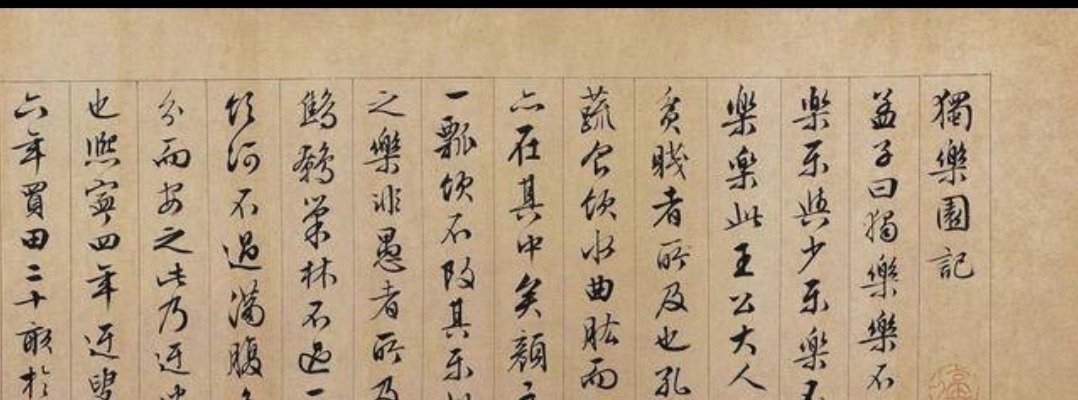 獨樂園記
孟子曰獨樂樂不
樂樂與少樂樂不
樂樂此王公大人
貧賤者所及也孔
蔬食飲水曲肱而
亦在其中矣顏
一瓢飲不改其樂
之樂非愚者所及
鷦鷯巢林不過一
飲河不過滿腹
分而安之此乃迂
也熙寧四年迂叟
六年買田二十畝於